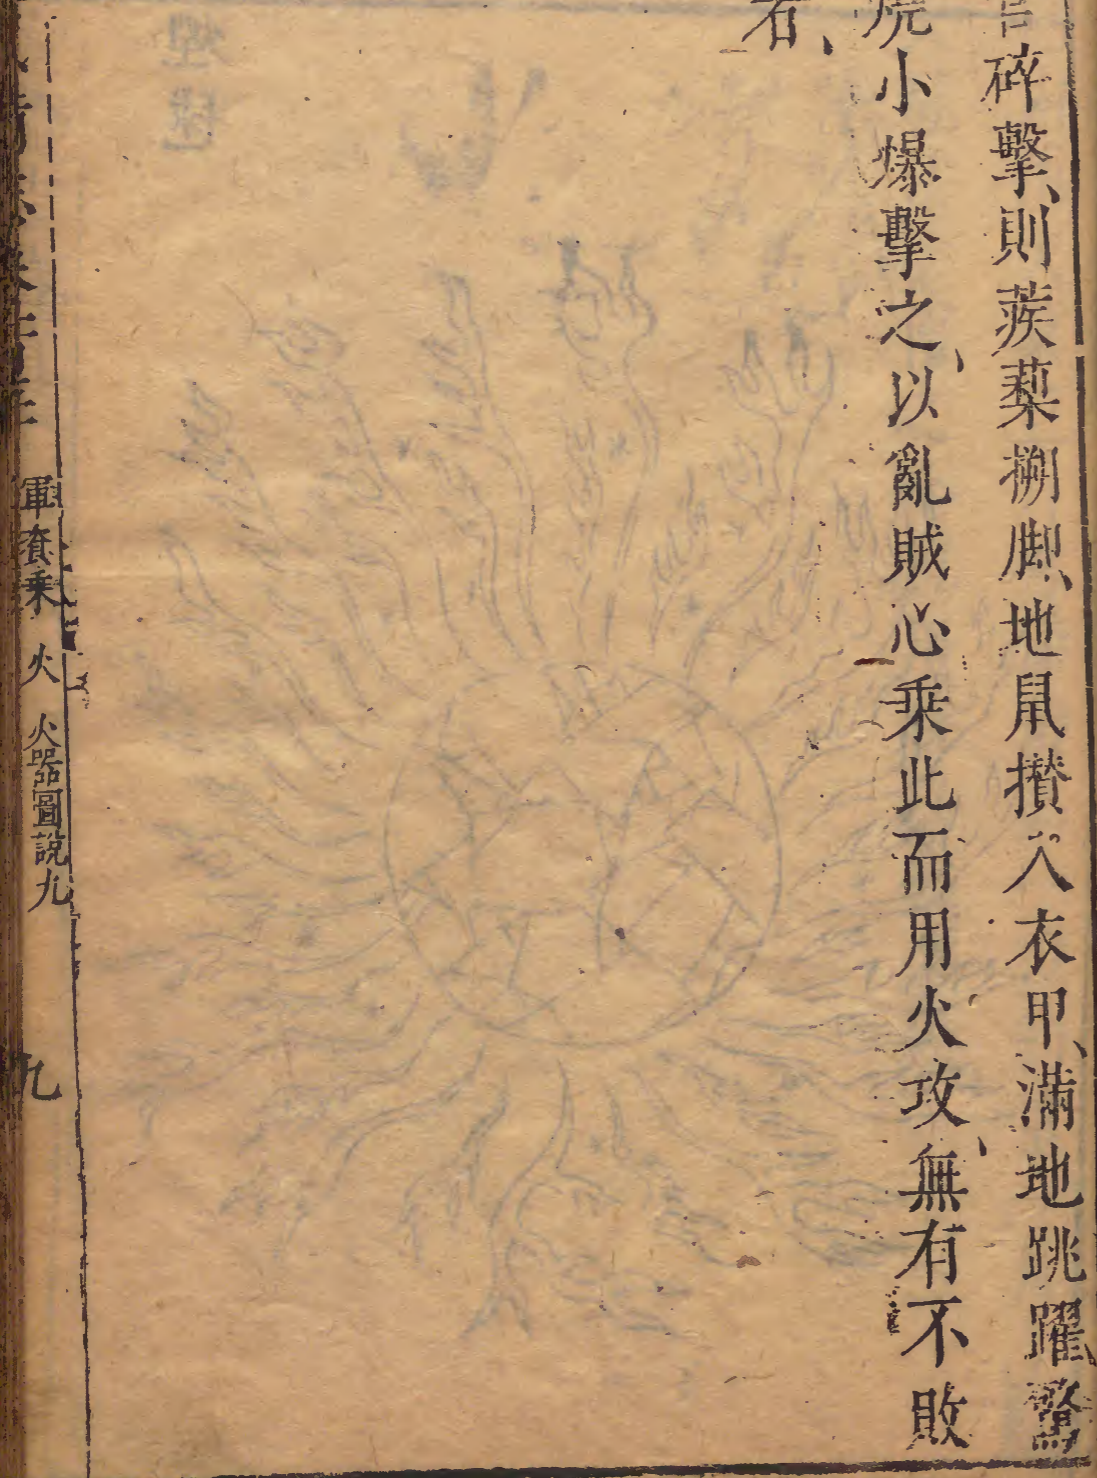 碎擊、則蒺藜搠脚、地鼠攅入衣甲、滿地跳躍驚
小爆擊之、以亂賊心乘此而用火攻、無有不敗
軍資乘 火 火器圖說九
九